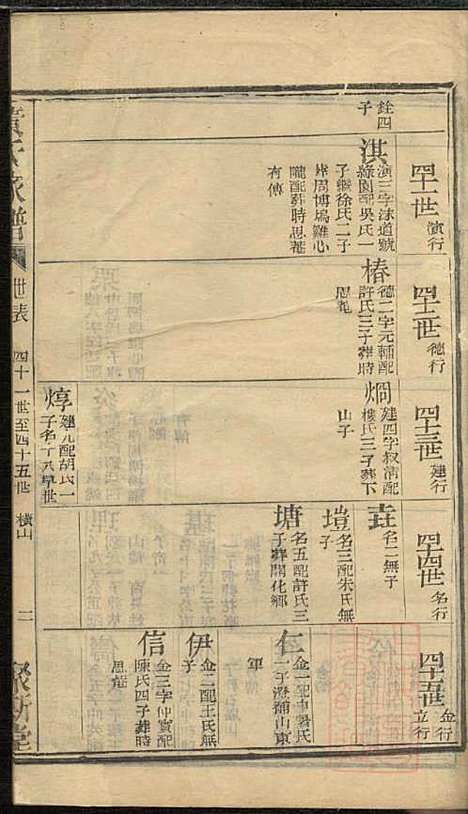 四十一世 演行
銓四子
淇 演三字沫道號
綠園配吳氏一
子繼徐氏二子
葬周博塢雞心
隴配葬時思菴
有傳
四十二世 德行
椿 德二字元輔配
許氏三子葬時
思菴
四十三世 建行
烱 建四字叔清配
樓氏三子葬下
山子
焞 建九配胡氏一
四十四世 名行
名二無子
塏 名三配朱氏無
塘 名五配許氏三
子葬開化鄉
四十五世 金行 立行
仁 金一配申屠氏
一子澄補山東
軍
伊 金二配王氏無
子
信 金三字仲實配
陳氏四子葬時
思菴
氏家譜 世表 四十一世至四十五世 橫山 二